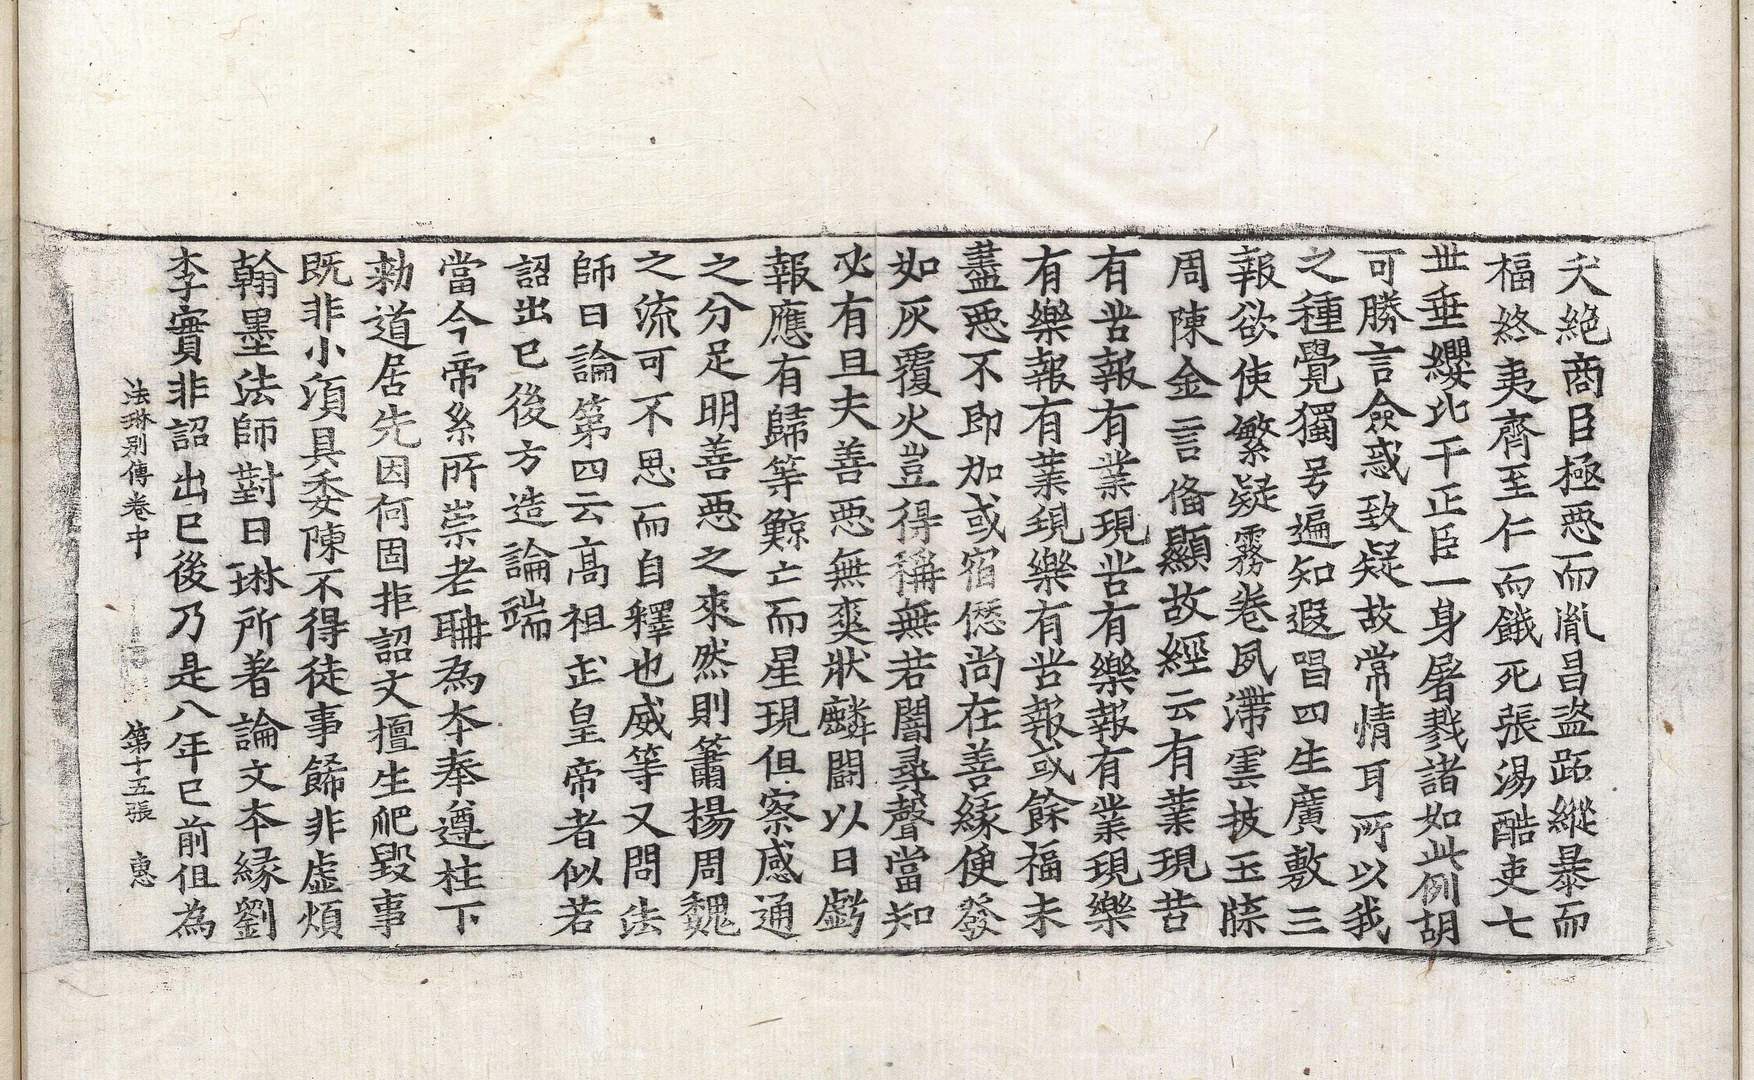 夭絶商臣極惡而胤昌盗跖縱暴而
福終夷齊至仁而餓死張湯酷吏七
世垂纓比干正臣一身屠戮諸如此例胡
可勝言僉惑致疑故常情耳所以我
之種覺獨号遍知遐唱四生廣敷三
報欲使繁疑霧卷夙滯雲披玉牒
周陳金言俻顯故經云有業現苦
有苦報有業現苦有樂報有業現樂
有樂報有業現樂有苦報或餘福未
盡惡不即加或宿𠎝尚在善緣便發
如灰覆火豈得稱無若闇尋聲當知
必有且夫善惡無爽狀麟鬪以日虧
報應有歸等鯨亡而星現但察感通
之分足明善惡之來然則簫楊周魏
之流可不思而自釋也威等又問法
師曰論第四云高祖武皇帝者似若
詔出已後方造論端
當今帝系所崇老聃為本奉遵柱下
勑道居先因何固拒詔文擅生舥毀事
既非小湏具委陳不得徒事餙非虛煩
翰墨法師對曰琳所著論文本縁劉
李實非詔出已後乃是八年已前伹為
法琳別傳卷中 第十五張 惠